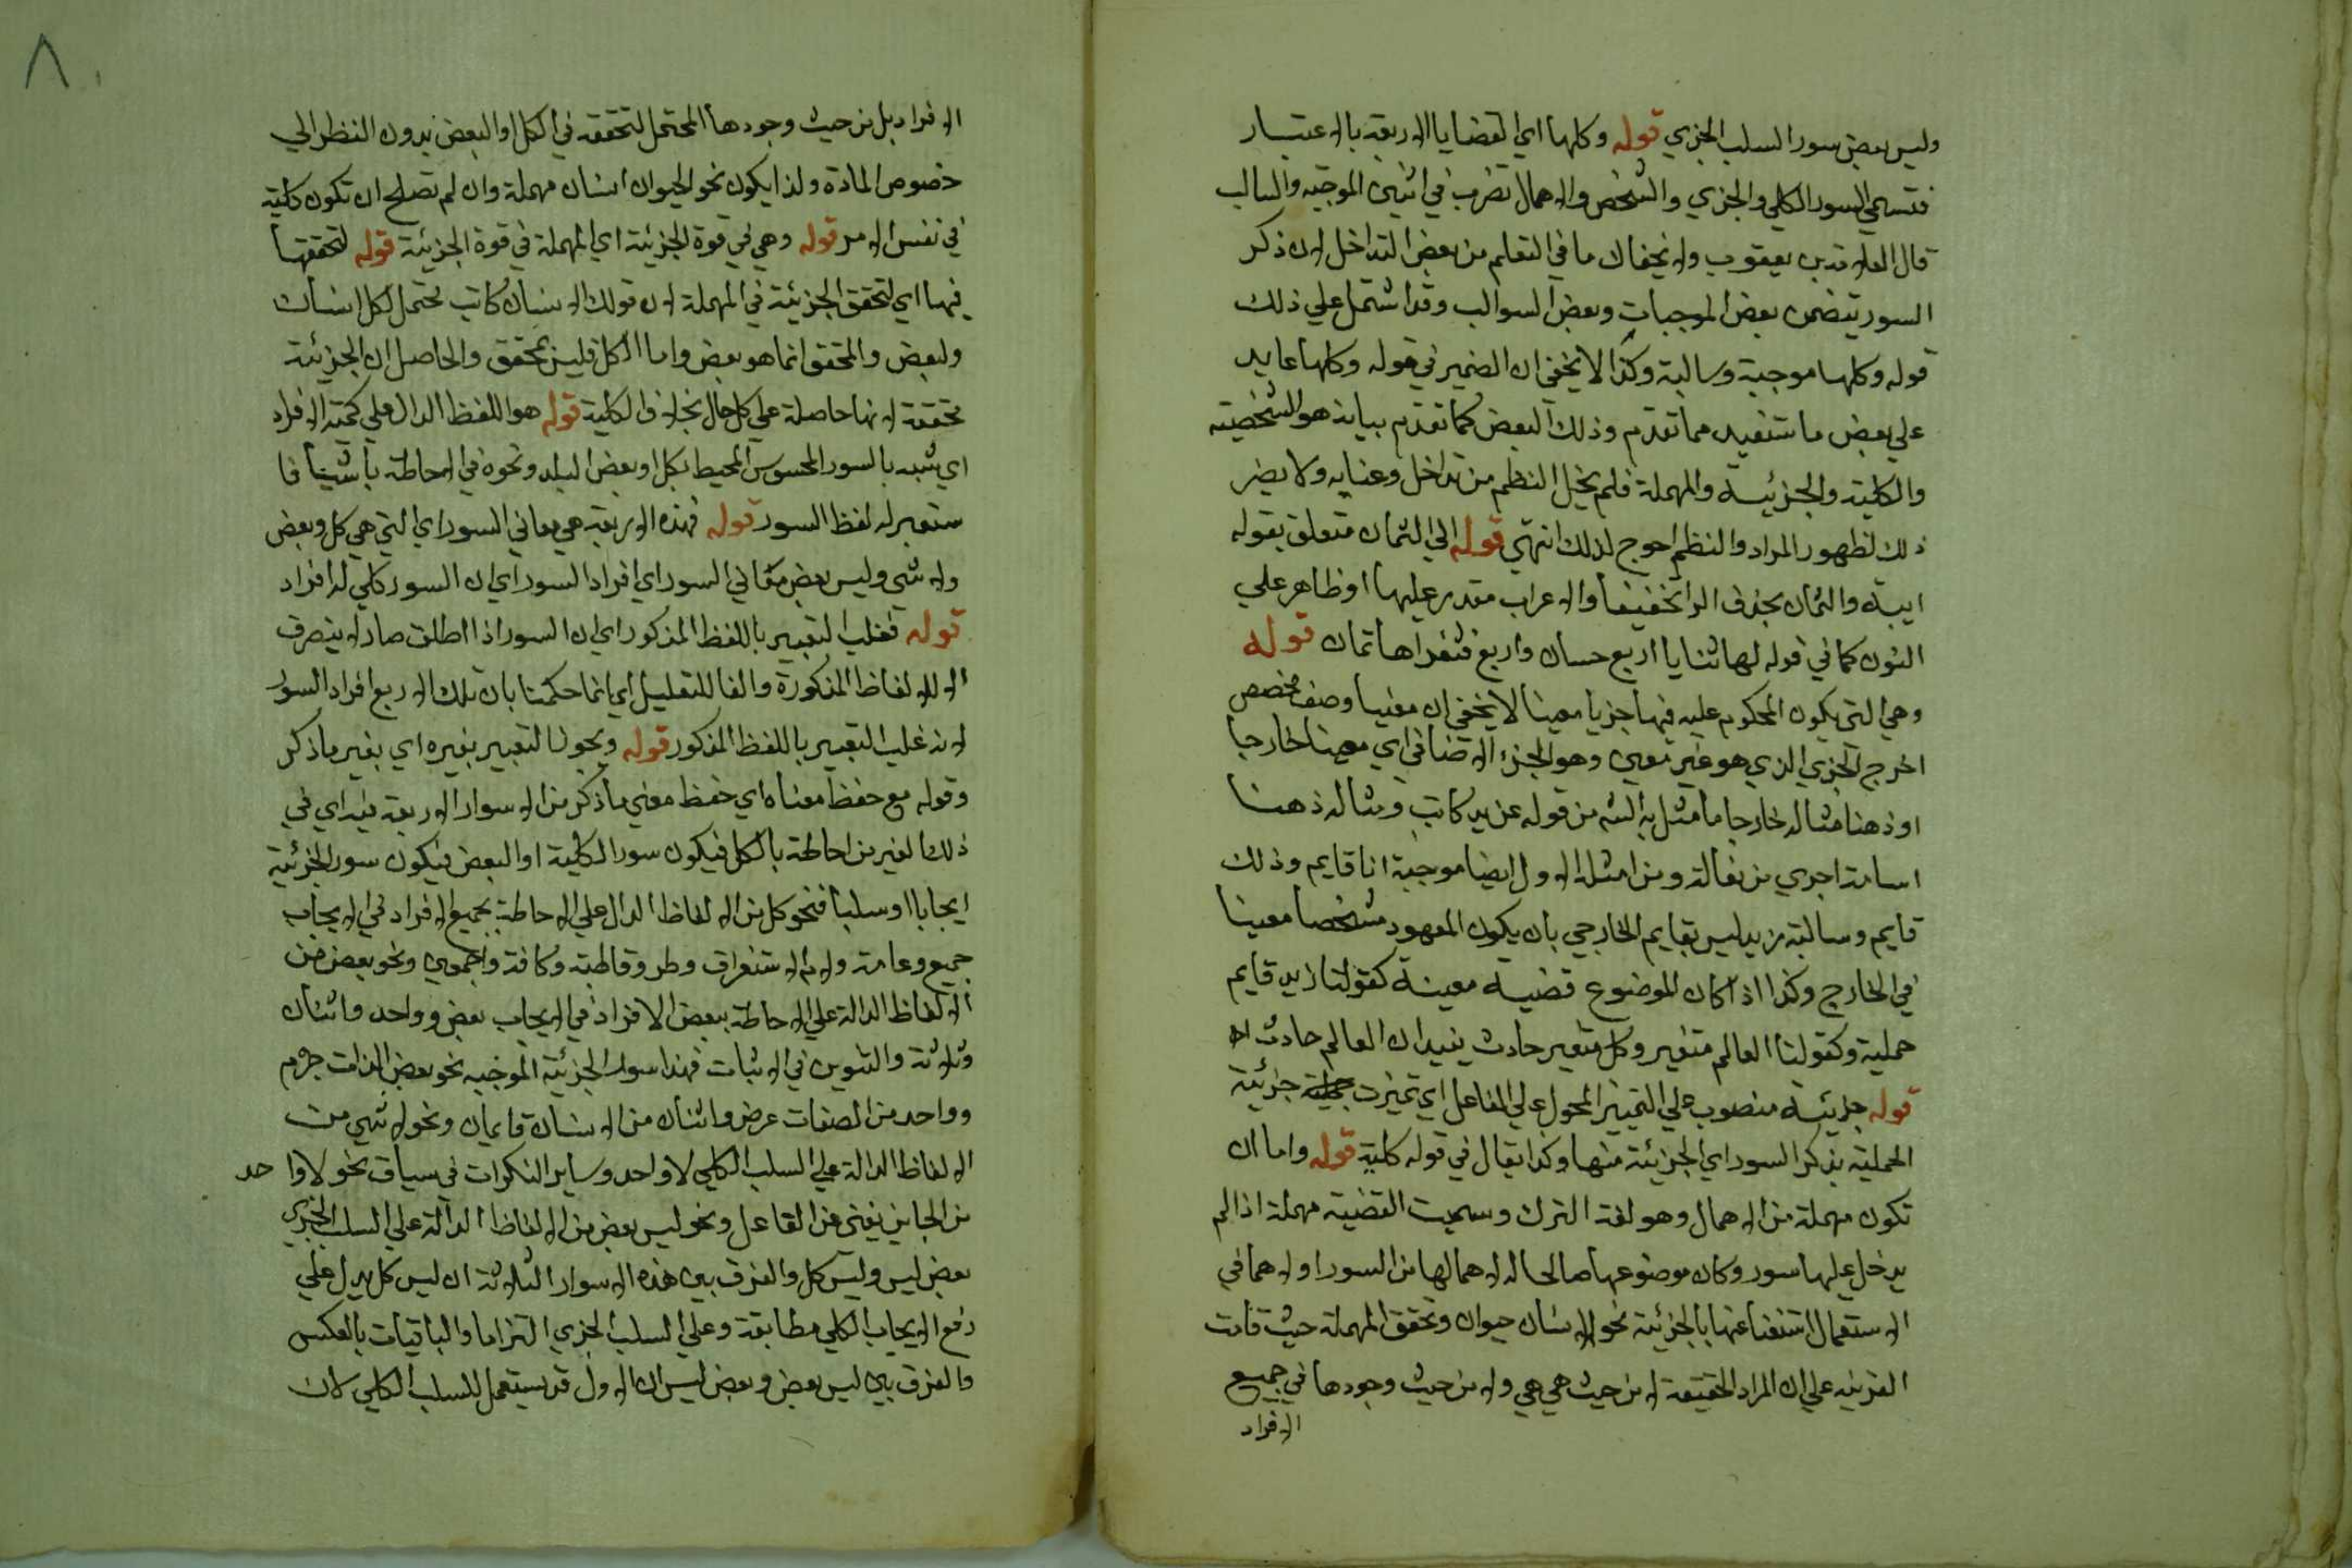 وليس بعض سور السلب الجزي قوله وكلها اي القضايا الاربعة بالاعتبار
فتسمي السور الكلي والجزي والشخص والاهمال تضرب في اثنين الموجبه والسالب
قال العلامة بن يعقوب ولا يخفاك ما في التعلم من بعض التداخل لان ذكر
السور يتضمن بعض الموجبات وبعض السوالب وقد اشتمل علي ذلك
قوله وكلها موجبة وسالبة وكذا لا يخفي ان الضمير في قوله وكلها عايد
علي بعض ما ستفيد مما تقدم وذلك البعض كما تقدم بيانه هو الشخصيته
والكلية والجزئية والمهملة فلم يخل النظم من تداخل وعنايه ولا يضر
ذلك لظهور المراد والنظم احوج لذلك انتهي قوله الي الثمان متعلق بقوله
ايبة والثمان بحذف اليا تخفيفا والاعراب مقدر عليها او ظاهر علي
النون كما في قوله لها ثنايا اربع حسان واربع فثغراها ثمان قوله
وهي التي يكون المحكوم عليه فيها جزيا معينا لا يخفي ان معنيا وصف مخصص
اخرج الجزي الذي هو غير معين وهو الجزء الاضافي اي معينا خارجا
او ذهنا مثاله خارجا ما مثل به الشه من قوله عن يد كاتب ومثاله ذهنا
اسامة اجري من ثعالة ومن امثلة الاول ايضا موجبة انا قايم وذلك
قايم وسالبة زيد ليس بقايم الخارجي بان يكون المعهود مشخصا معينا
في الخارج وكذا اذا كان الموضوع قضية معينة كقولنا زيد قايم
حملية وكقولنا العالم متغير وكل متغير حادث يفيد ان العالم حادث اه
قوله جزئية منصوب علي التمييز المحول علي الفاعل اي تميزت جزئية
الحملية بذكر السور اي الجزئية منها وكذا يقال في قوله كلية قوله واما ان
تكون مهملة من الاهمال وهو لغة الترك وسميت القضية مهملة اذا لم
يدخل عليها سور وكان موضوعها صالحا له لاهمالها من السور او لاهمالها في
الاستعمال استغنا عنها بالجزئية نحو الانسان حيوان وتحقق المهملة حيث قامت
القرينه علي ان المراد الحقيقة لا من حيث هي هي ولا من حيث وجودها في جميع
الافراد
٨٠
الافراد بل من حيث وجودها المحتمل لتحققه في الكل او البعض بدون النظر الي
خصوص المادة ولذا يكون نحو الحيوان انسان مهملة وان لم تصلح ان تكون كلية
في نفس الامر قوله وهي في قوة الجزئية اي المهملة في قوة الجزئية قوله لتحققها
فيها اي لتحقق الجزئية في المهملة لان قولك الانسان كاتب يحتمل لكل انسان
ولبعض والمتحقق انما هو بعض واما الكل فليس بمحقق والحاصل ان الجزئية
محققة لانها حاصلة علي كل حال بخلاف الكلية قوله هو اللفظ الدال علي كمية الافراد
اي شبه بالسور المحسوس المحيط بكل او بعض البلد ونحوه في الاحاطة باشيا فا
ستعير له لفظ السور قوله فهذه الاربعة هي معاني السور اي التي هي كل وبعض
ولا شي وليس بعض معاني السور اي افراد السور اي ان السور كلي له افراد
قوله فغلب التعبير باللفظ المذكور اي ان السور اذا اطلق صار لا ينصرف
الا للالفاظ المذكورة والفا للتعليل اي انما حكمنا بان تلك الاربع افراد السور
لانه غلب التعبير باللفظ المذكور قوله ويجوز التعبير بغيره اي بغير ما ذكر
وقوله مع حفظ معناه اي حفظ معني ما ذكر من الاسوار الاربعة فيه اي في
ذلك الغير من احاطة بالكل فيكون سور الكلية او البعض فيكون سور الجزئية
ايجابا او سلبا فنحو كل من الالفاظ الدال علي الاحاطة بجميع الافراد في الايجاب
جميع وعامة ولام الاستغراق وطر وقاطبة وكافة واجمعين ونحو بعض من
الالفاظ الدالة علي الاحاطة ببعض الافراد في الايجاب بعض وواحد واثنان
وثلاثة والتنوين في الاثبات فهذا سور الجزئية الموجبه نحو بعض الذات جرم
وواحد من الصفات عرض واثنان من الانسان قايمان ونحو لا شي من
الالفاظ الدالة علي السلب الكلي لا واحد وساير النكرات في سياق نحو لا واحد
من الجانبين يغني عن الفاعل ونحو ليس بعض من الالفاظ الدالة علي السلب الجزي
بعض ليس وليس كل والفرق بين هذه الاسوار الثلاثة ان ليس كل يدل علي
رفع الايجاب الكلي مطابقة وعلي السلب الجزي التزاما والباقيات بالعكس
والفرق بين ليس بعض وبعض ليس ان الاول قد يستعمل للسلب الكلي لان